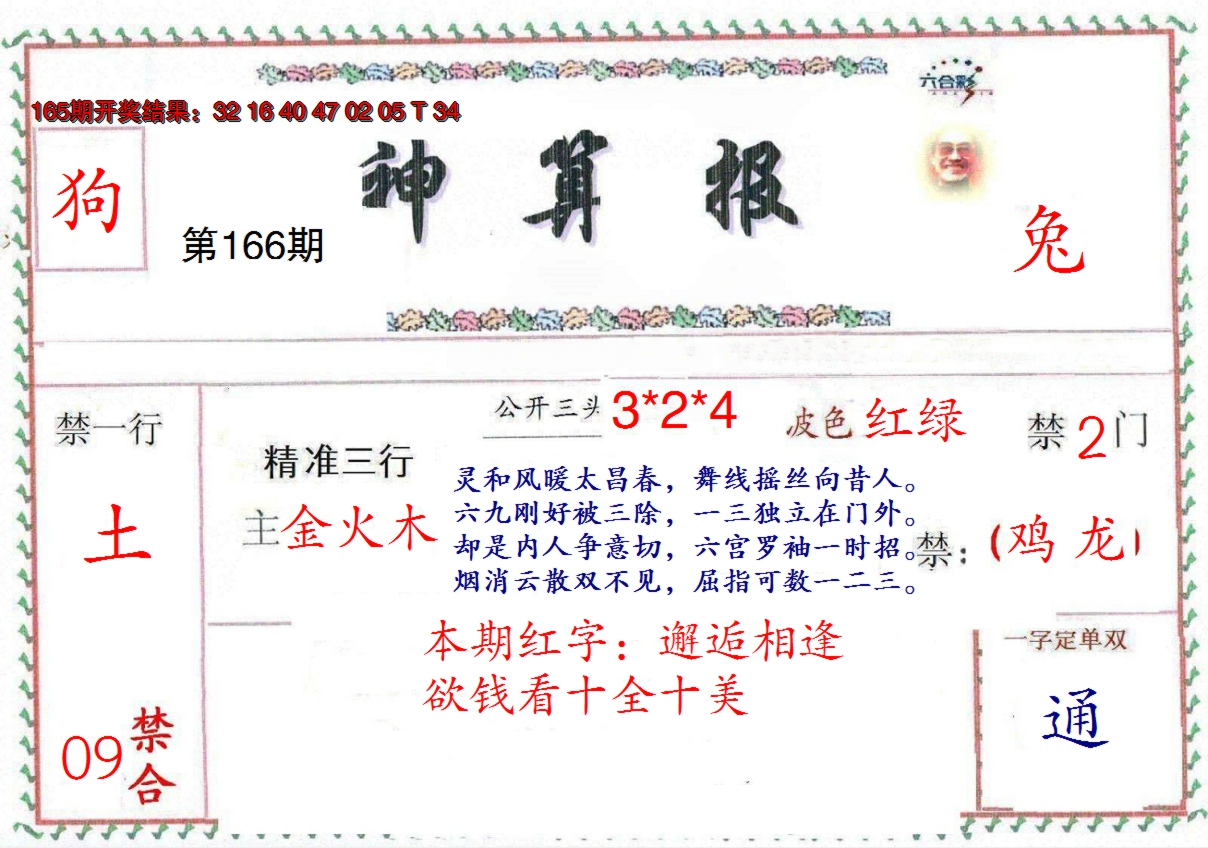 六合彩
165期开奖结果：32 16 40 47 02 05 T 34
神算报
狗
第166期
兔
禁一行
土
09
禁合
精准三行
主金火木
公开三头 3*2*4
波色 红绿
禁2门
灵和风暖太昌春，舞线摇丝向昔人。
六九刚好被三除，一三独立在门外。
却是内人争意切，六宫罗袖一时招。
烟消云散双不见，屈指可数一二三。
禁：（鸡 龙）
本期红字：邂逅相逢
欲钱看十全十美
一字定单双
通